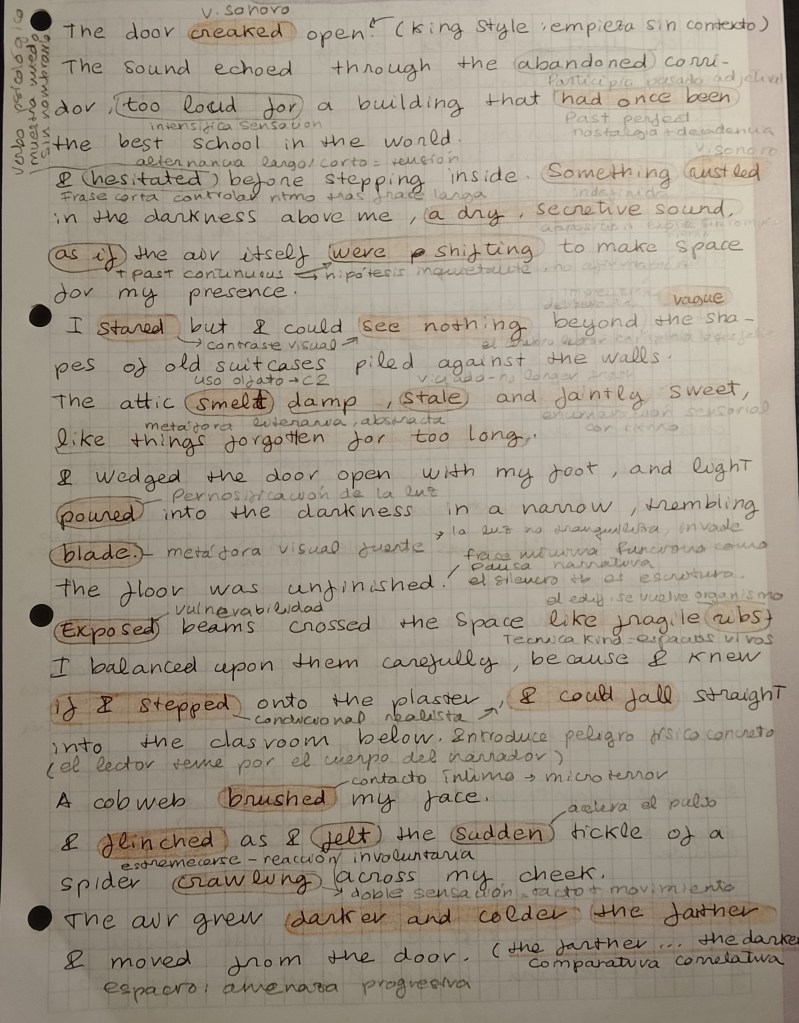 v. sonoro
The door creaked open. (King style : empieza sin contexto)
The sound echoed through the abandoned corri-
Participio pasado adjetival
dor, too loud for a building that had once been
intensifica sensation
Past perfect
nostalgia + decadencia
the best school in the world.
verbo psicologico
muestra miedo
sin nombrarlo
alternancia largo/corto = tensión
v. sonoro
I hesitated before stepping inside. Something rustled
Frase corta controlar ritmo tras frace larga
indefinido
in the darkness above me, a dry, secretive sound,
as if the air itself were shifting to make space
+ past continuous → hipótesis inquietante, no
for my presence.
vague
I stared but I could see nothing beyond the sha-
→ contraste visual
pes of old suitcases piled against the walls.
uso olfato → C2
The attic smelt damp, stale and faintly sweet,
metáfora literaria, abstracta
sensorial
like things forgotten for too long.
I wedged the door open with my foot, and light
Pernosificación de la luz
poured into the darkness in a narrow, trembling
→ la luz no tranquiliza, invade
blade. – metáfora visual fuerte
frase mínima funciona como
pausa narrativa
The floor was unfinished.
el silencio tb es escritura.
vulnerabilidad
el edif. se vuelve organismo
Exposed beams crossed the space like fragile ribs
Tecnica Kind – espacios vivos
I balanced upon them carefully, because I knew
if I stepped onto the plaster, I could fall straight
– condicional realista
into the clasroom below. Introduce peligro físico concreto
(el lector teme por el cuerpo del narrador)
contacto íntimo → microterror
A cobweb brushed my face.
acelera el pulso
I flinched as I felt the sudden tickle of a
estremecerse – reacción involuntaria
spider crawling across my cheek.
→ doble sensación – tacto + movimiento
The air grew darker and colder the farther
I moved from the door. (the farther ... the darker
comparativa correlativa
espacio: amenaza progresiva